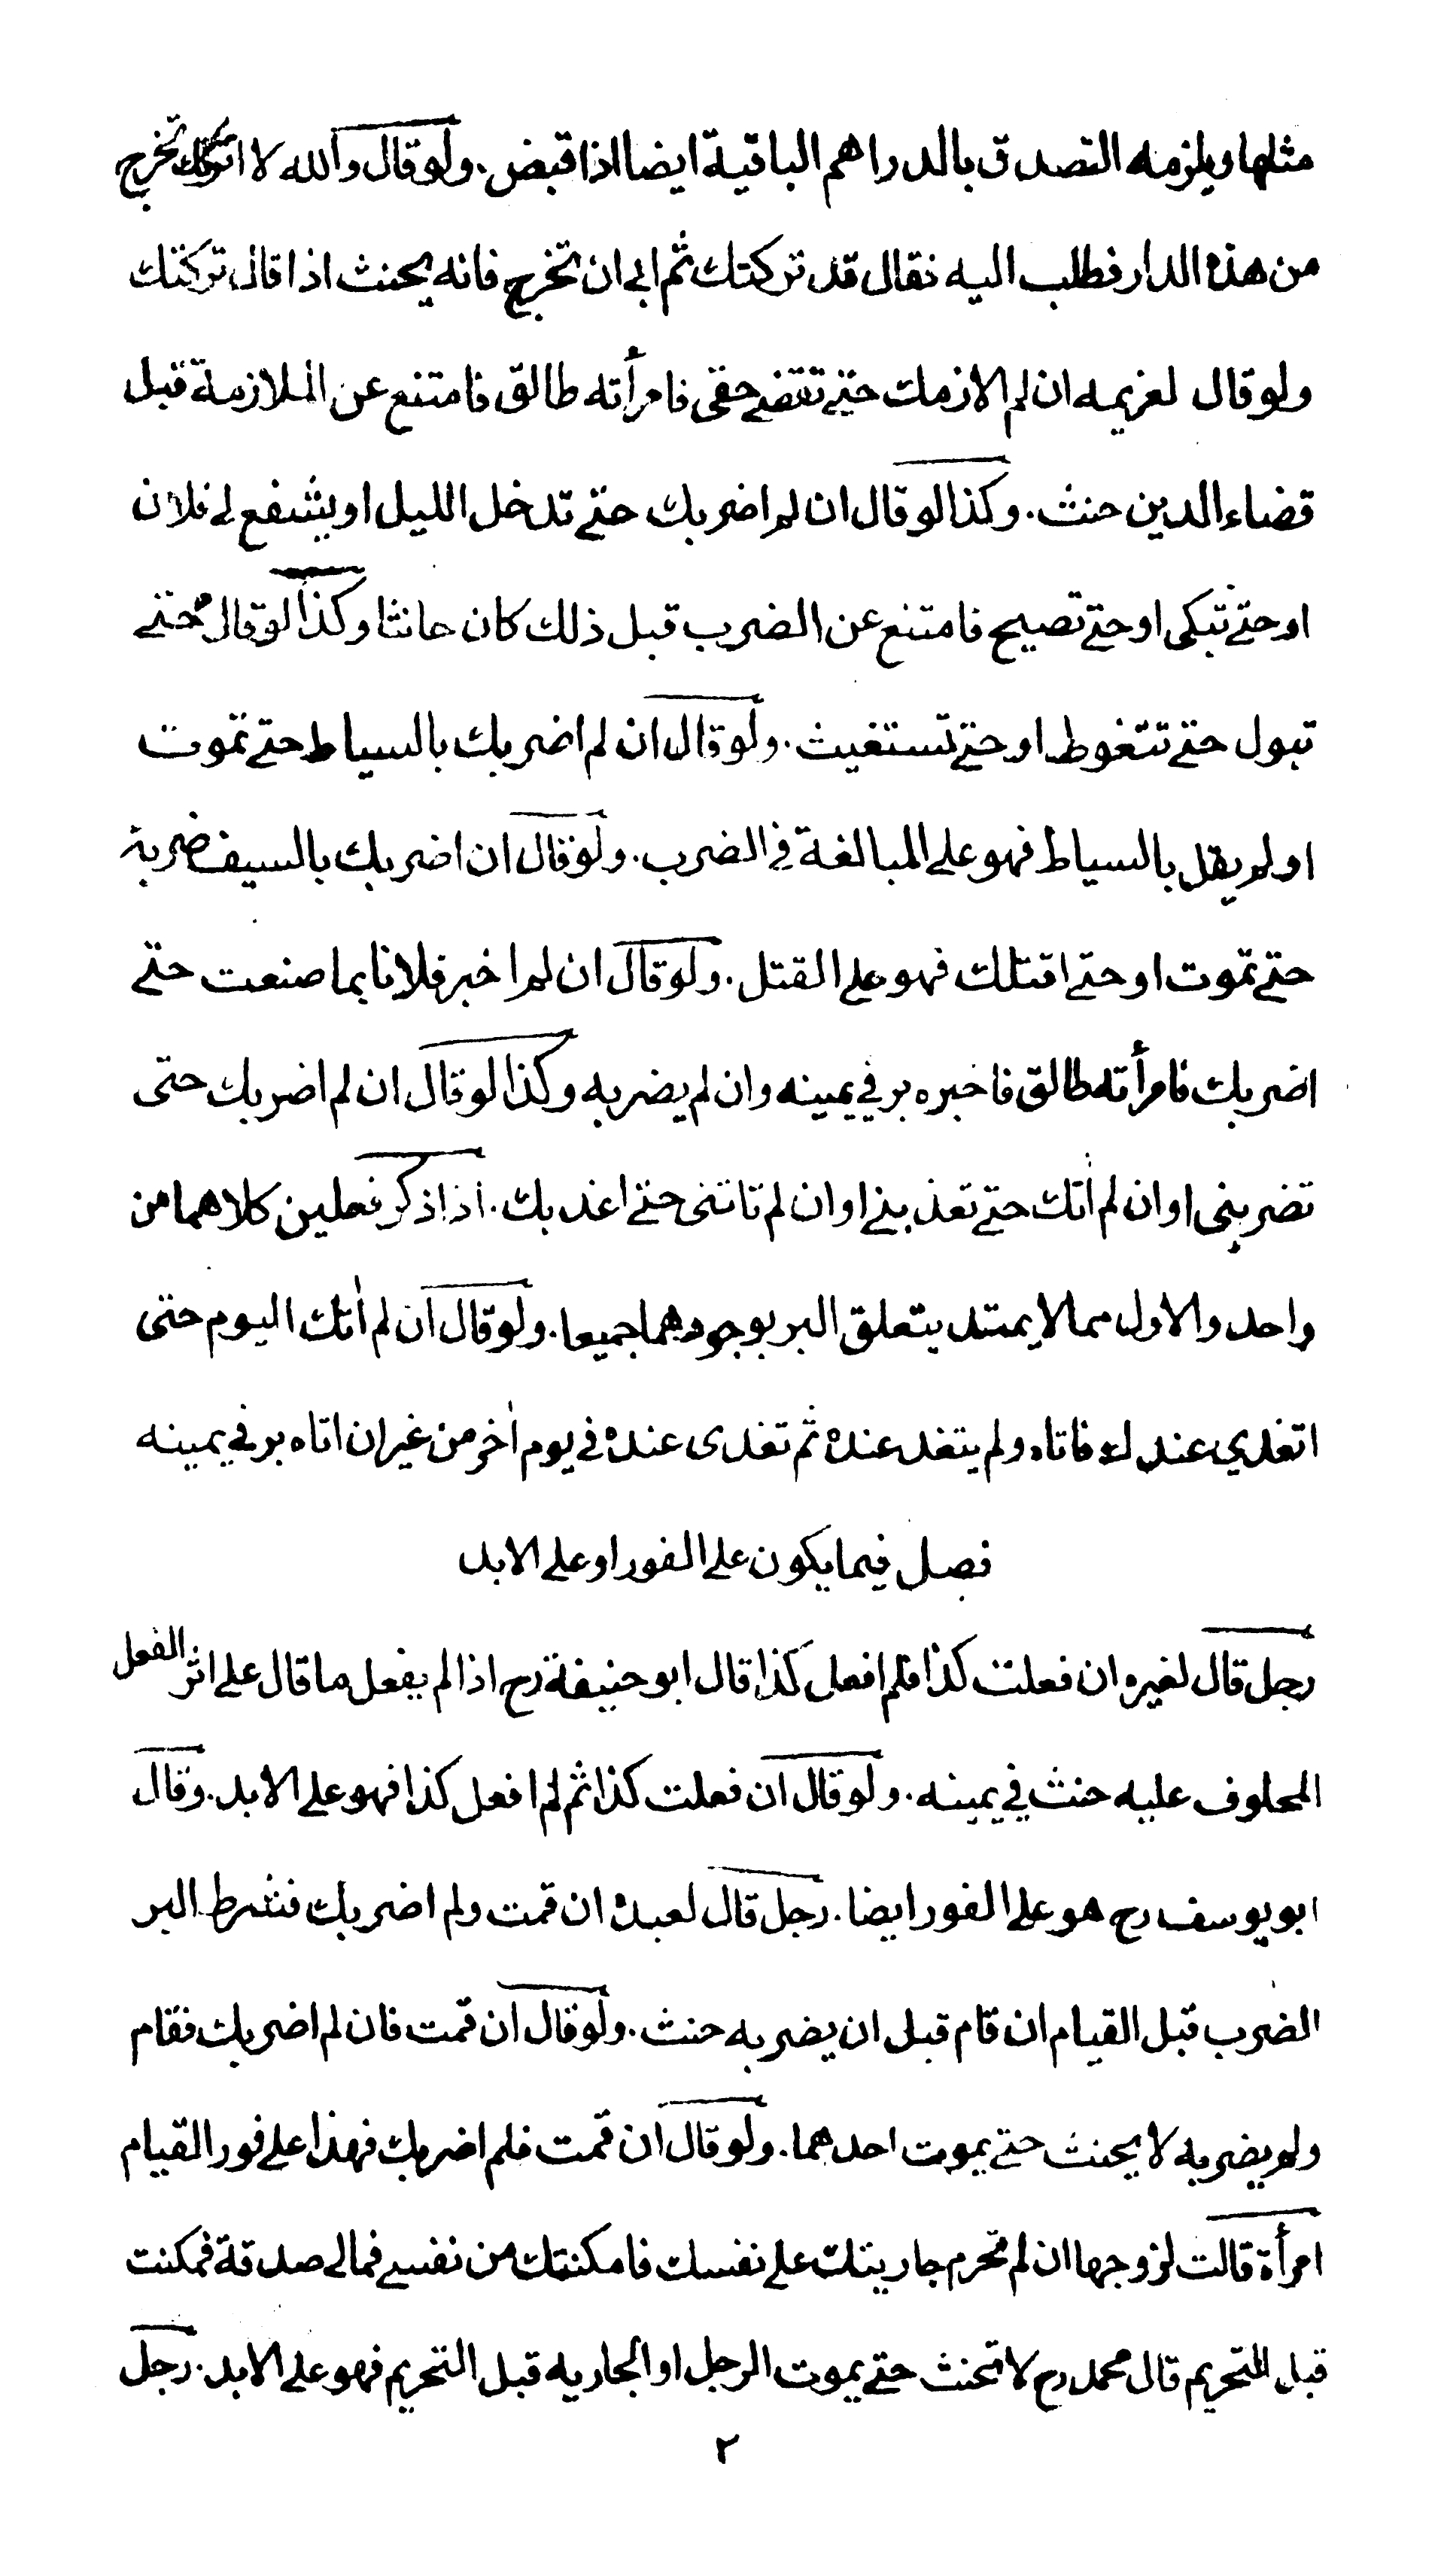 مثلها ويلزمه التصدق بالدراهم الباقية ايضا اذا قبض. ولو قال والله لا اتركك تخرج
من هذه الدار فطلب اليه فقال قد تركتك ثم ابى ان تخرج فانه يحنث اذا قال تركتك
ولو قال لغريمه ان لم الازمك حتى تقتضى حقى فامرأته طالق فامتنع عن الملازمة قبل
قضاء الدين حنث. وكذا لو قال ان لم اضربك حتى تدخل الليل او يشفع لى فلان
او حتى تبكى او حتى تصيح فامتنع عن الضرب قبل ذلك كان حانثا وكذا لو قال حتى
تبول حتى تتغوط او حتى تستغيث. ولو قال ان لم اضربك بالسياط حتى تموت
او لم يقل بالسياط فهو على المبالغة فى الضرب. ولو قال ان اضربك بالسيف ضربة
حتى تموت او حتى اقتلك فهو على القتل. ولو قال ان لم اخبر فلانا بما صنعت حتى
اضربك فامرأته طالق فاخبره بر في يمينه وان لم يضربه وكذا لو قال ان لم اضربك حتى
تضربنى او ان لم اٰتك حتى تغذينى او ان لم تاتنى حتى اغذيك. اذا ذكر فعلين كلاهما من
واحد والاول مما لا يمتد يتعلق البر بوجودهما جميعا. ولو قال ان لم اٰتك اليوم حتى
اتغدي عندك فاتاه ولم يتغد عنده ثم تغدى عنده في يوم اٰخر من غير ان اتاه بر في يمينه
فصل فيما يكون على الفور او على الابد
رجل قال لغيره ان فعلت كذا فلم افعل كذا قال ابو حنيفة رح اذا لم يفعل ما قال على اثر الفعل
المحلوف عليه حنث في يمينه. ولو قال ان فعلت كذا ثم لم افعل كذا فهو على الابد. وقال
ابو يوسف رح هو على الفور ايضا. رجل قال لعبده ان قمت ولم اضربك فشرط البر
الضرب قبل القيام ان قام قبل ان يضربه حنث. ولو قال ان قمت فان لم اضربك فقام
ولم يضربه لا يحنث حتى يموت احدهما. ولو قال ان قمت فلم اضربك فهذا على فور القيام
امرأة قالت لزوجها ان لم تحرم جاريتك على نفسك فامكنتك من نفسى فمالى صدقة فمكنت
قبل التحريم قال محمد رح لا تحنث حتى يموت الرجل او الجاريه قبل التحريم فهو على الابد. رجل
٢